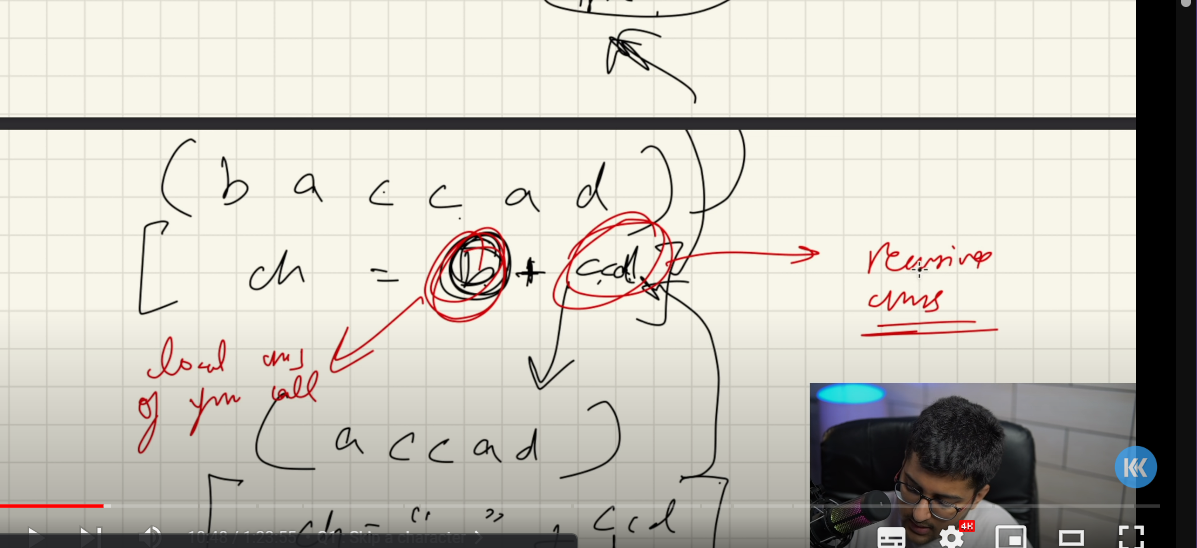 ( b a c c a d )
[ ch = b + ccd ]
recursive
ans
local ans
of your call
( a c c a d )
[ ch = " " + ccd
10:48 / 1:23:55 · Q1: Skip a character >
4K